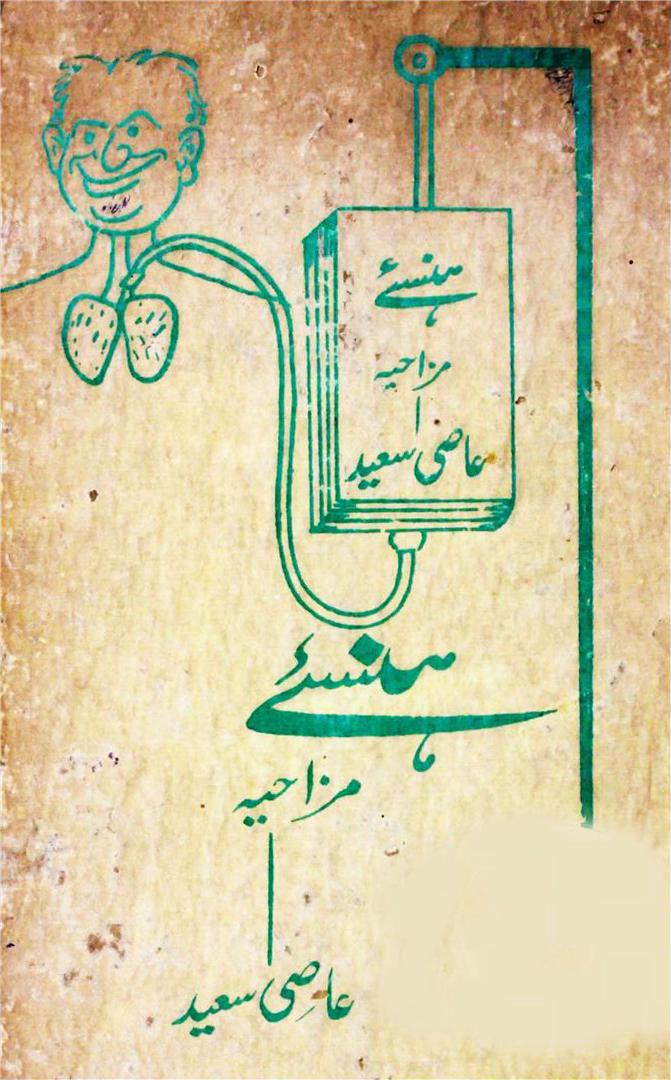 ہنسئے
مزاحیہ
عاصی سعید
ہنسئے
مزاحیہ
عاصی سعید